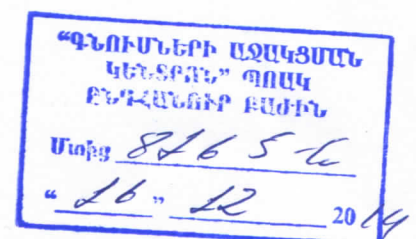 “ԳՆՈՒՄՆԵՐԻ ԱՋԱԿՑՄԱՆ
ԿԵՆՏՐՈՆ” ՊՈԱԿ
ԸՆԴՀԱՆՈՒՐ ԲԱԺԻՆ
Մտից 8165-Ն
“16” 12 2014